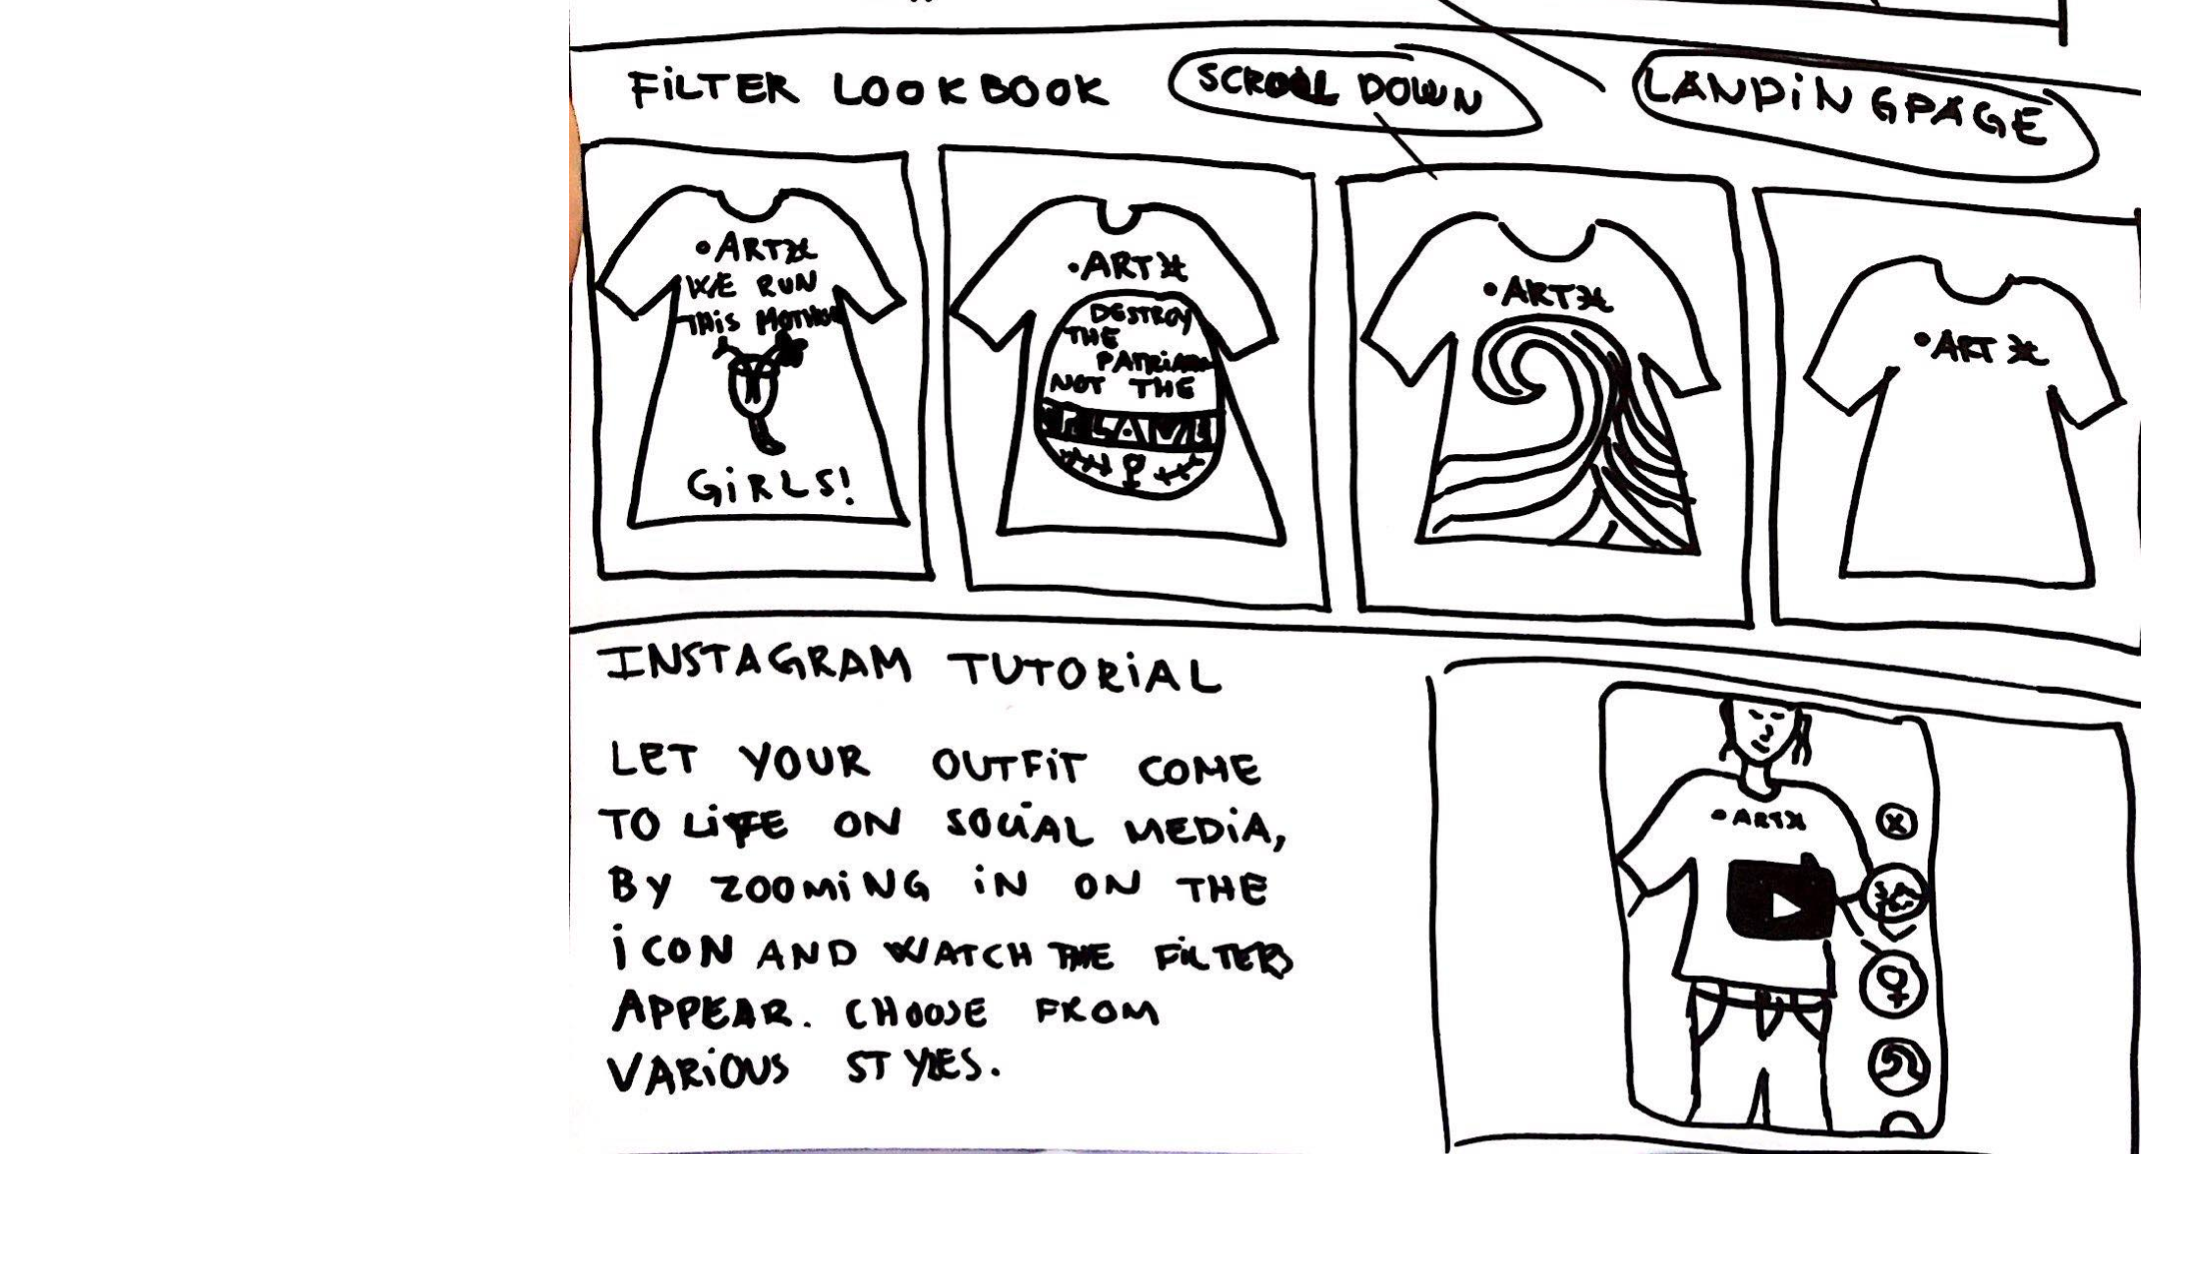 FiLTER LOOKBOOK
SCROLL DOWN
LANDiNGPAGE
•ART
WE RUN
THiS MOTHER
GiRLS!
•ART
DESTROY
THE
NOT THE
•ART
•ART
INSTAGRAM TUTORiAL
LET YOUR OUTFiT COME
TO LiFE ON SOCiAL MEDiA,
BY ZOOMiNG iN ON THE
iCON AND WATCH THE FiLTERS
APPEAR. CHOOSE FROM
VARiOUS STYLES.
•ART
X